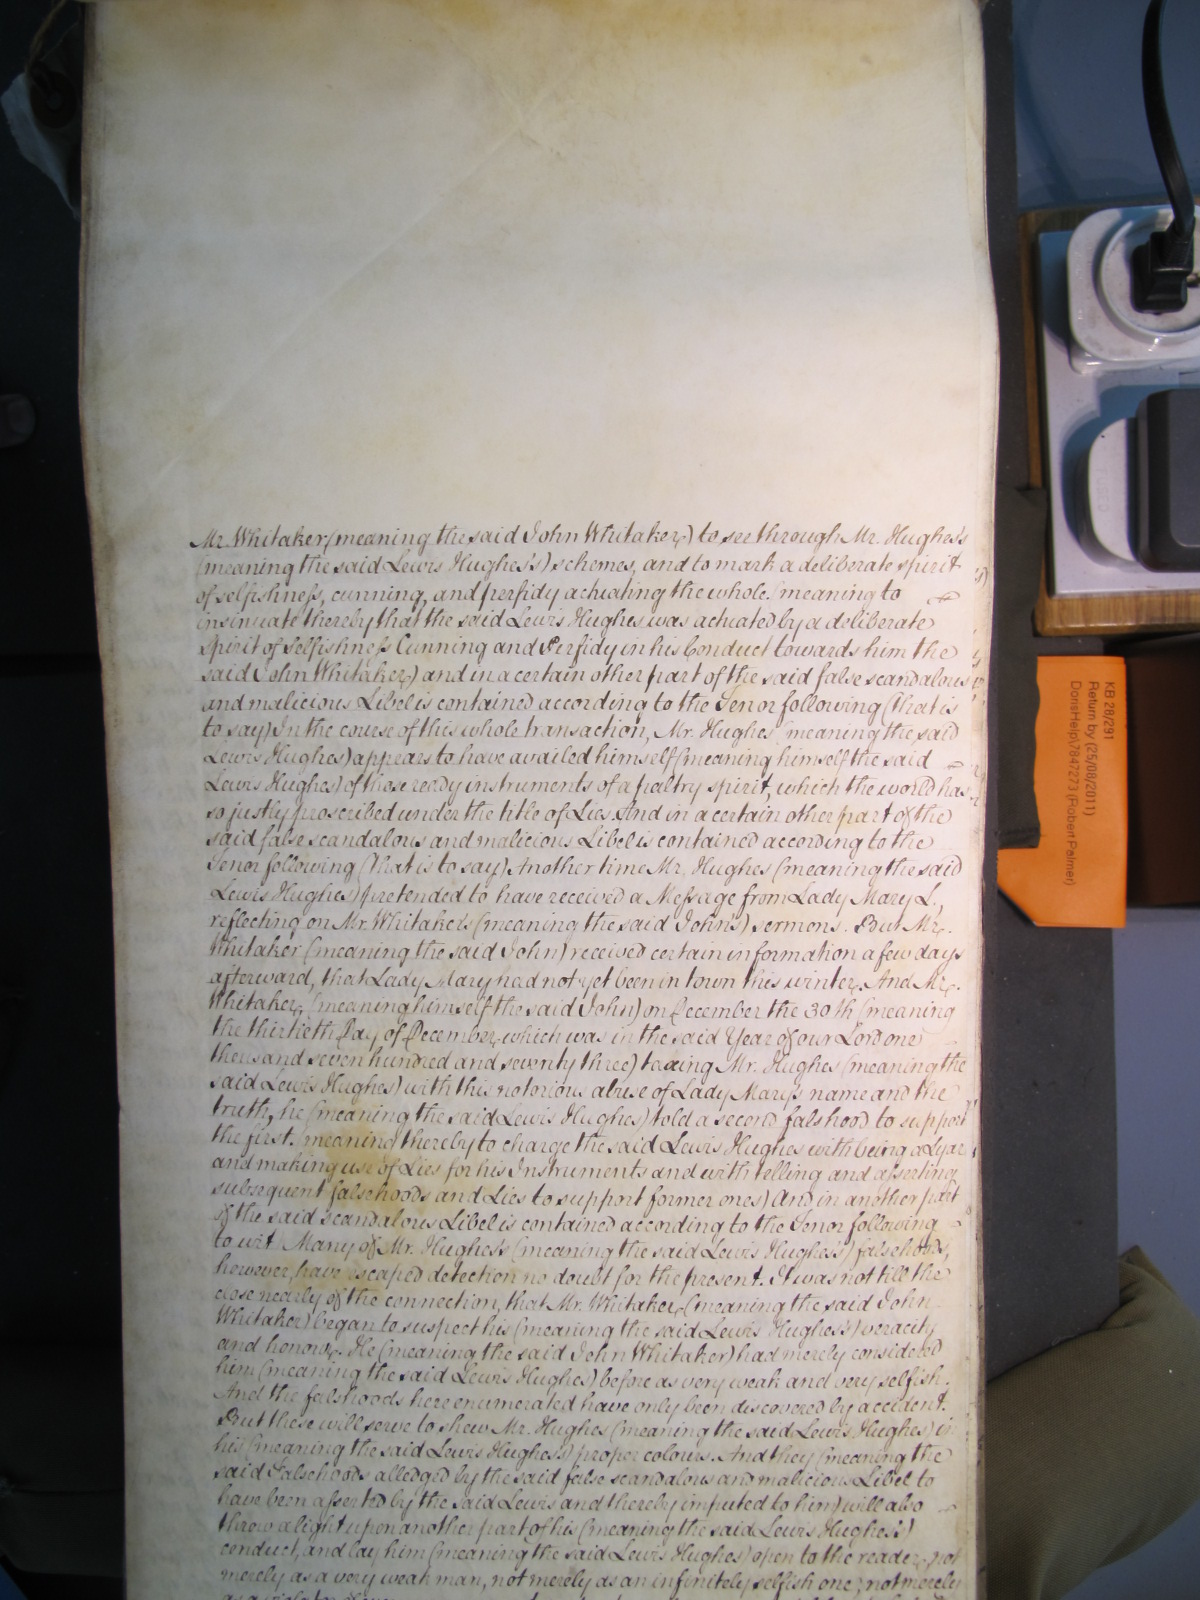 Mr. Whitaker (meaning the said John Whitaker) to see through Mr. Hughes's
(meaning the said Lewis Hughes's) schemes, and to mark a deliberate spirit
of selfishness, cunning, and perfidy actuating the whole. (meaning to
insinuate thereby that the said Lewis Hughes was actuated by a deliberate
Spirit of Selfishness Cunning and Perfidy in his Conduct towards him the
said John Whitaker) and in a certain other part of the said false scandalous
and malicious Libel is contained according to the Tenor following (that is
to say) In the course of this whole transaction, Mr. Hughes (meaning the said
Lewis Hughes) appears to have availed himself (meaning himself the said
Lewis Hughes) of those ready instruments of a paltry spirit, which the world has
so justly proscribed under the title of Lies. And in a certain other part of the
said false scandalous and malicious Libel is contained according to the
Tenor following (that is to say) Another time Mr. Hughes (meaning the said
Lewis Hughes) pretended to have received a Message from Lady Mary L.,
reflecting on Mr. Whitaker's (meaning the said John's) sermons. But Mr.
Whitaker (meaning the said John) received certain information a few days
afterward, that Lady Mary had not yet been in town this winter. And Mr.
Whitaker, (meaning himself the said John) on December the 30th (meaning
the thirtieth Day of December which was in the said Year of our Lord one
thousand seven hundred and seventy three) taxing Mr. Hughes (meaning the
said Lewis Hughes) with this notorious abuse of Lady Mary's name and the
truth, he (meaning the said Lewis Hughes) told a second falshood to support
the first. (meaning thereby to charge the said Lewis Hughes with being a Lyar
and making use of Lies for his Instruments and with telling and asserting
subsequent falsehoods and Lies to support former ones) And in another part
of the said scandalous Libel is contained according to the Tenor following
to wit Many of Mr. Hughes's (meaning the said Lewis Hughes's) falsehoods,
however, have escaped detection no doubt for the present. It was not till the
close nearly of the connection, that Mr. Whitaker, (meaning the said John
Whitaker) began to suspect his (meaning the said Lewis Hughes's) veracity
and honour. He (meaning the said John Whitaker) had merely considered
him (meaning the said Lewis Hughes) before as very weak and very selfish.
And the falshoods here enumerated have only been discovered by accident.
But these will serve to shew Mr. Hughes (meaning the said Lewis Hughes) in
his (meaning the said Lewis Hughes's) proper colours. And they (meaning the
said Falsehoods alledged by the said false scandalous and malicious Libel to
have been asserted by the said Lewis and thereby imputed to him) will also
throw a light upon another part of his (meaning the said Lewis Hughes's)
conduct, and lay him (meaning the said Lewis Hughes) open to the reader, not
merely as a very weak man, not merely as an infinitely selfish one, not merely
KB 28/291
Return by (25/08/2011)
DorisHelp\7847273 (Robert Palmer)